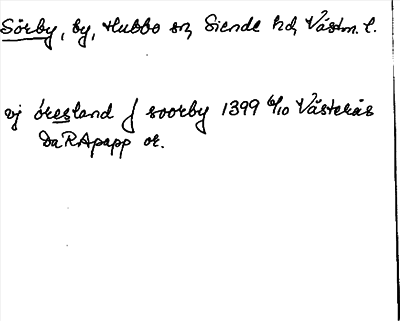 Sörby, by, Hubbo sn, Siende hd, Västm. l.
vj öresland j soorby 1399 6/10 Västerås
DaRApapp or.